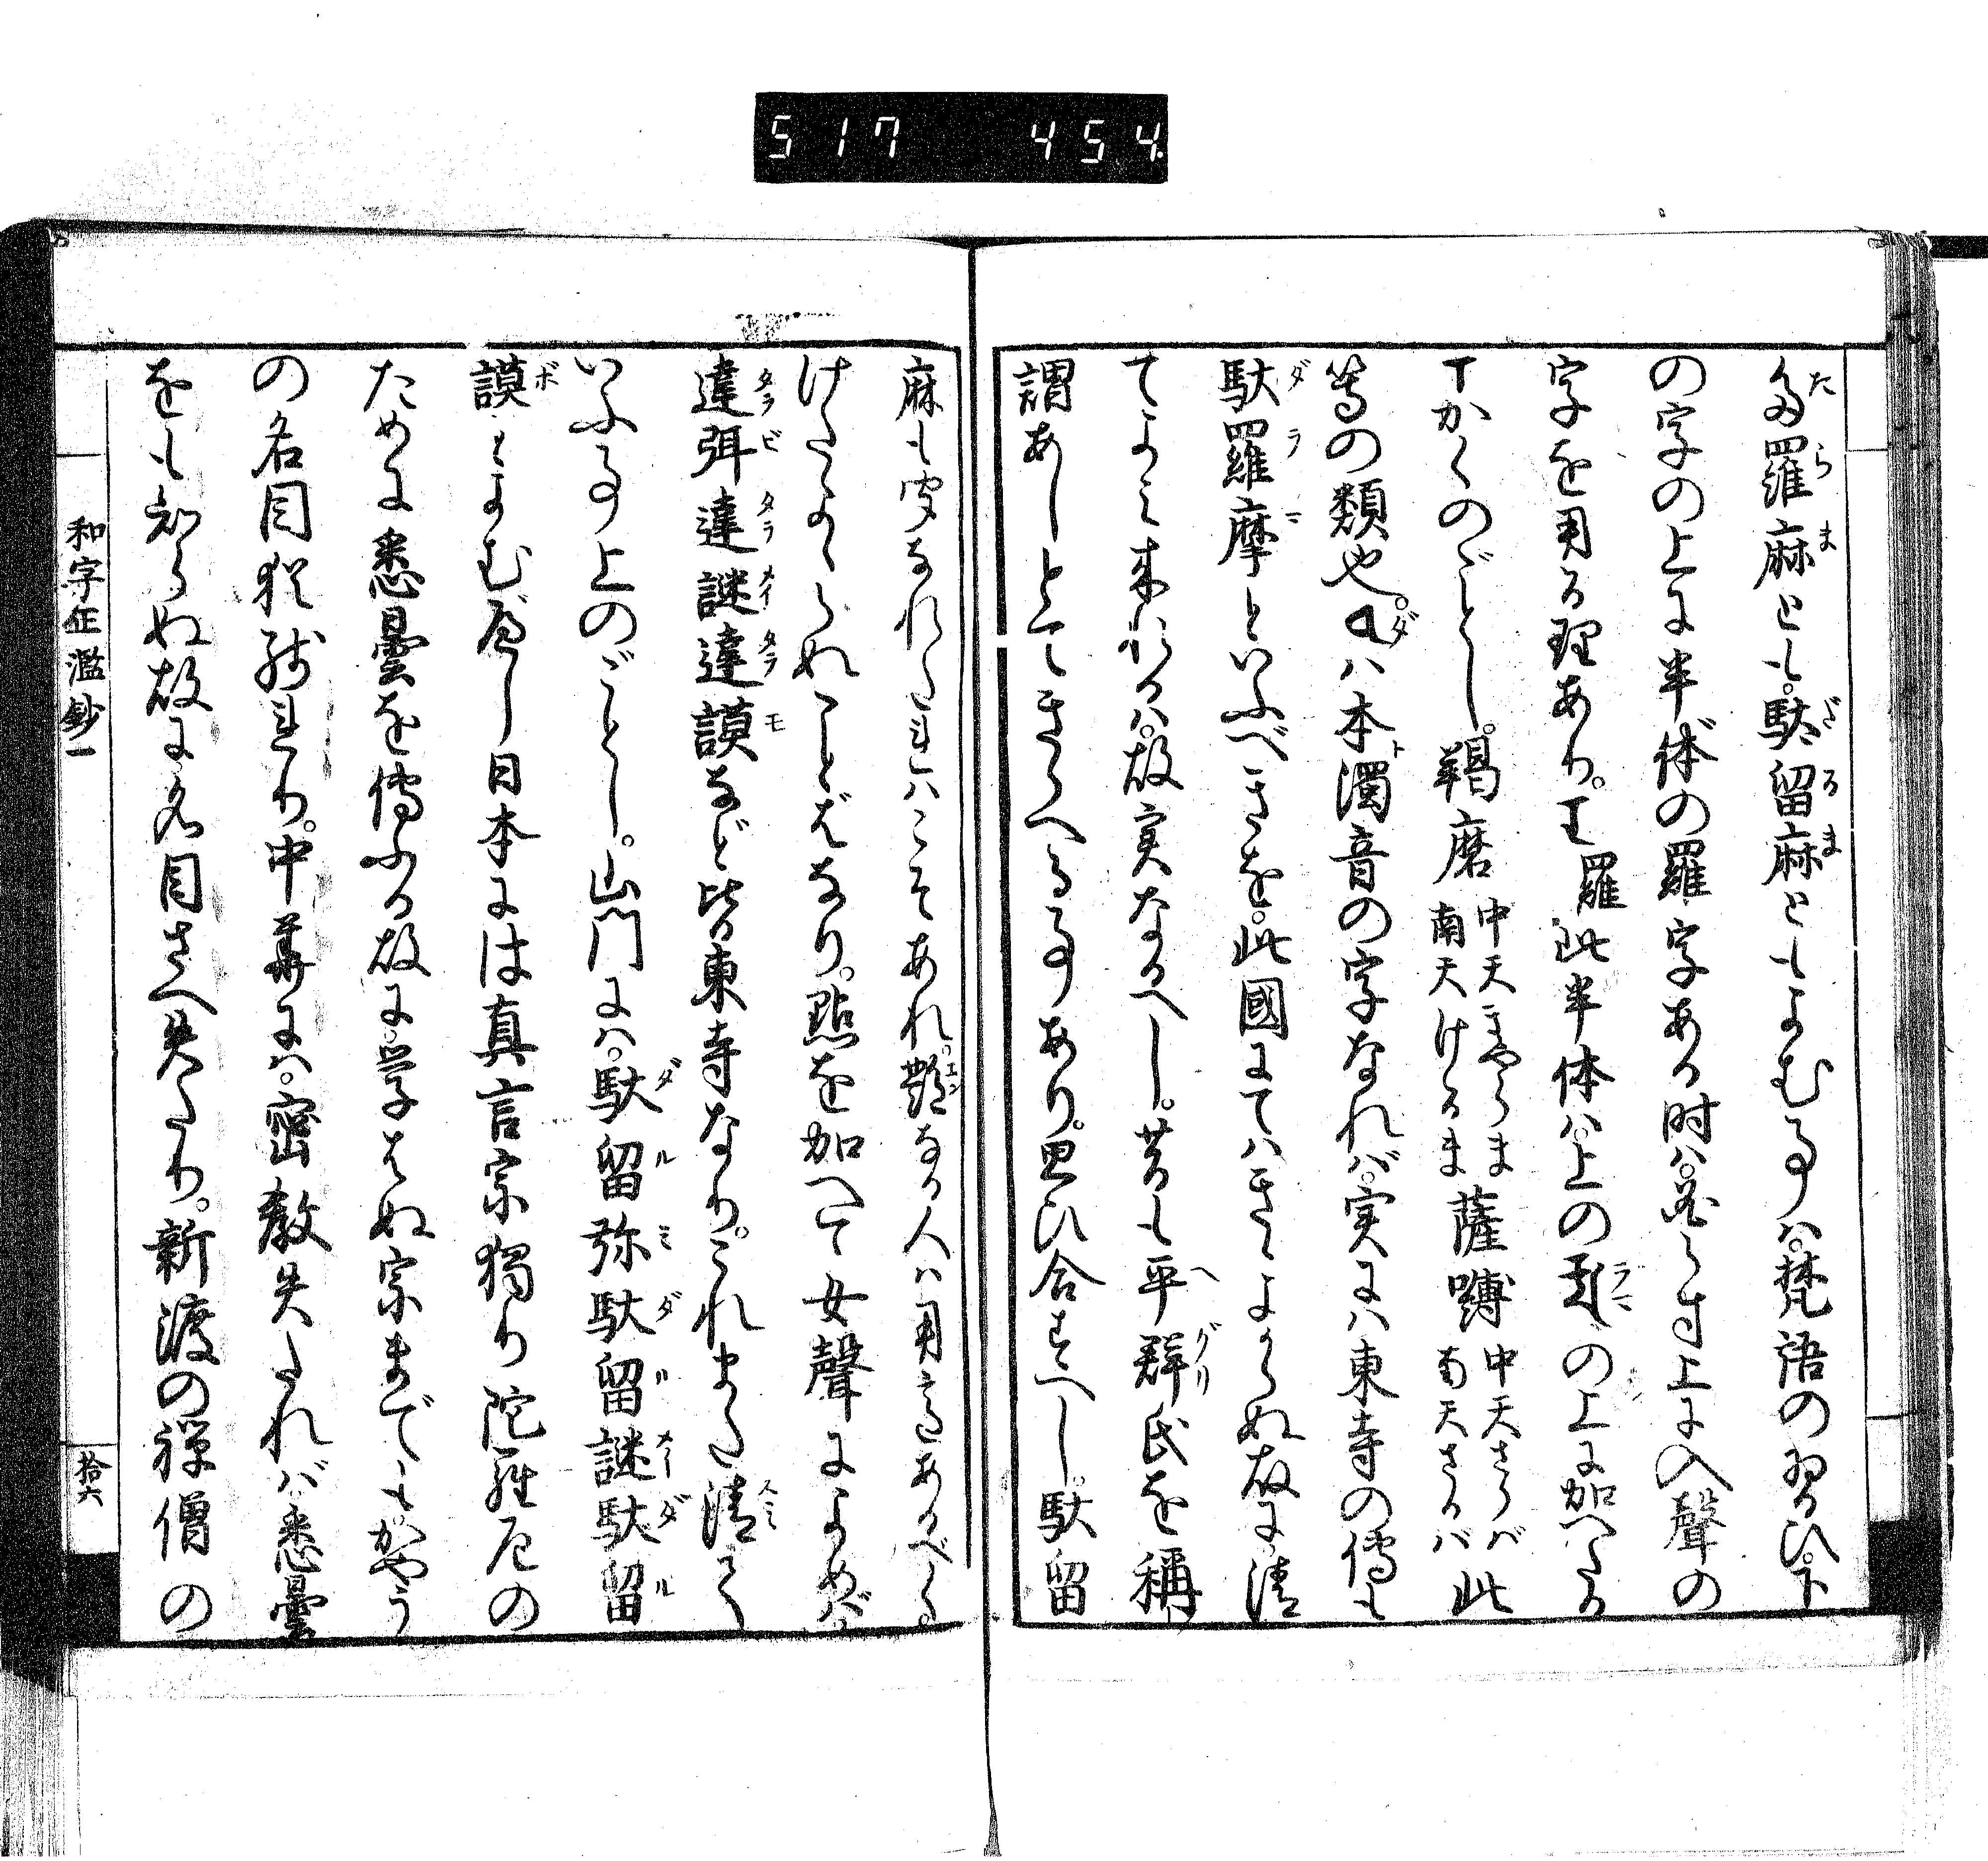 517 454
多羅麻とも。駄留麻ともよむ事ハ。梵語の習ひ。下
の字の上に半体の羅字ある時ハ。必らす上に入聲の
字を用る理あり。羅此半体ハ。上のの上に加へたる
かくのごとし。羯磨中天きやらま南天けるま薩嚩中天さらバ南天さるバ此
等の類也。ハ本濁音の字なれバ。実にハ東寺の傳も
駄羅摩といふべきを。此國にてハきゝよからぬ故に。清
てよみ来れるハ。故実なるへし。昔も平群氏を稱
謂あしとてきらへる事あり。思ひ合すへし。駄留
麻も実なれたれハこそあれ。艶なる人ハ用意あるべくる。
けたよからぬことばなり。點を加へて女聲によめバ。
達弭達謎達謨など皆東寺なり。これまた清て
いふ事上のごとし。山門にハ。駄留弥駄留謎駄留
謨とよむべし日本には真言宗獨り陀羅尼の
ために悉曇を傳ふる故に。学はぬ宗までも。かやう
の名目猶残れり。中華にハ。密教失たれバ。悉曇
をも知らぬ故に名目さへ失たり。新渡の禅僧の
和字正濫鈔一
拾六